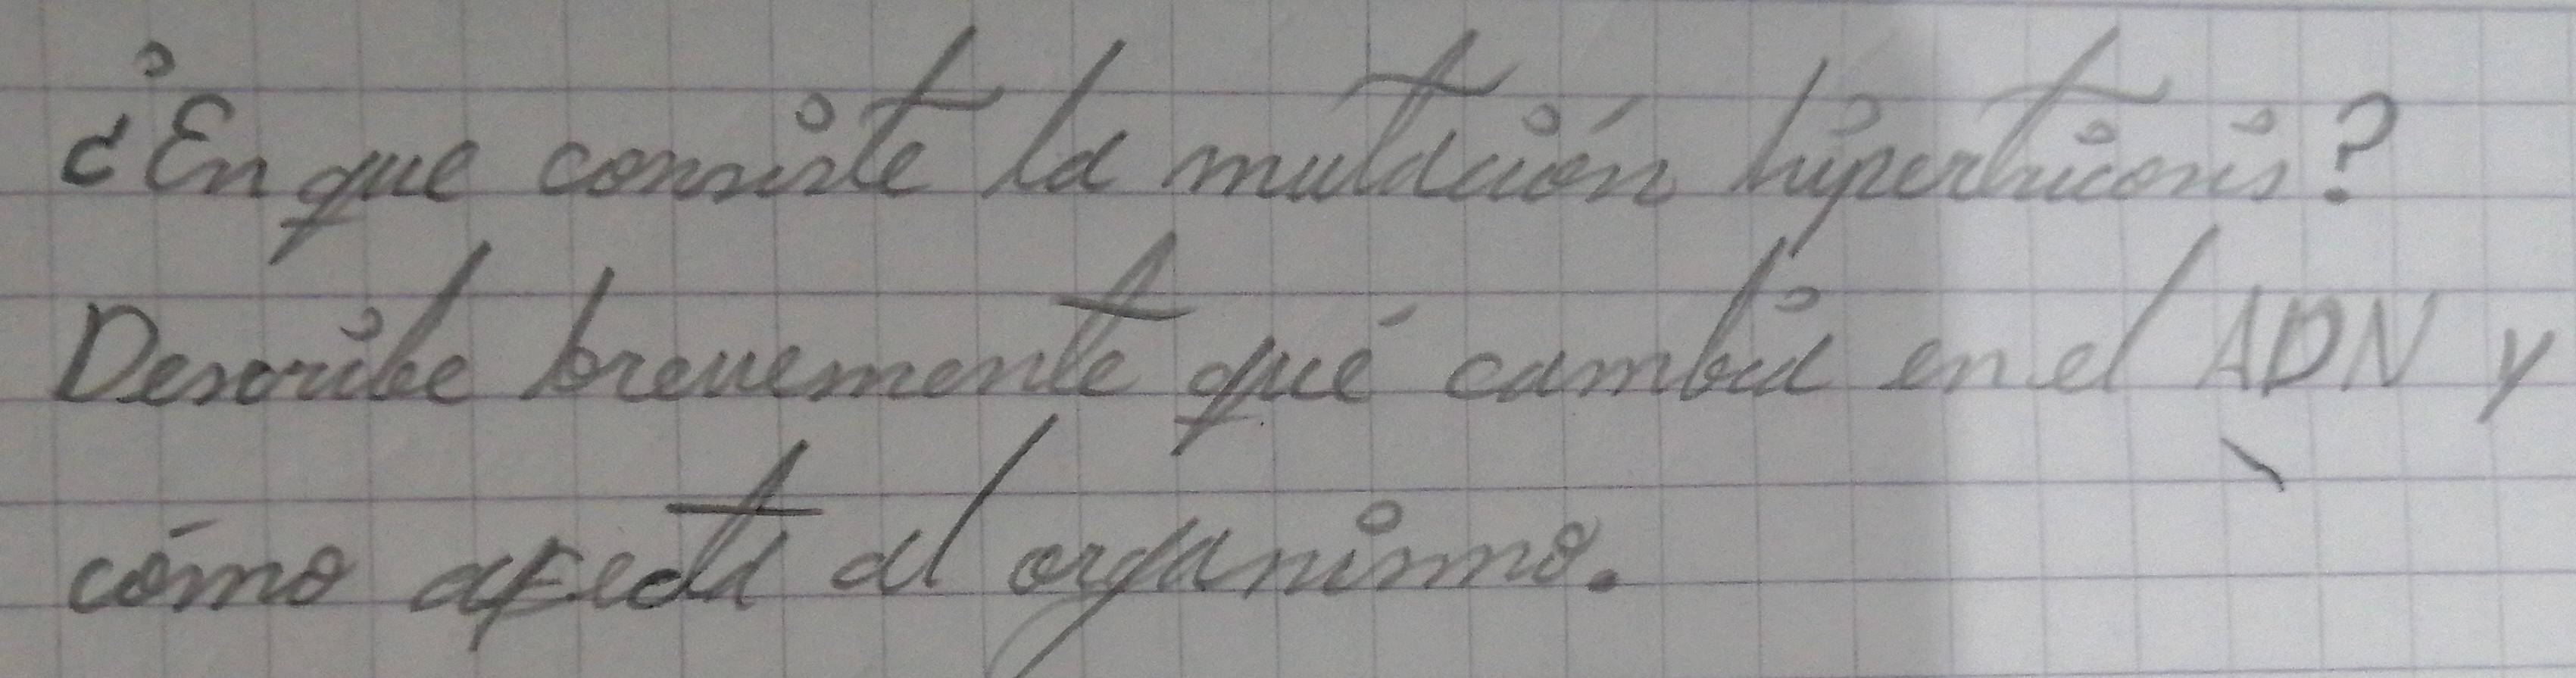 ¿En que consiste la mutación hipertricosis?
Describe brevemente qué cambia en el ADN y
cómo afecta al organismo.